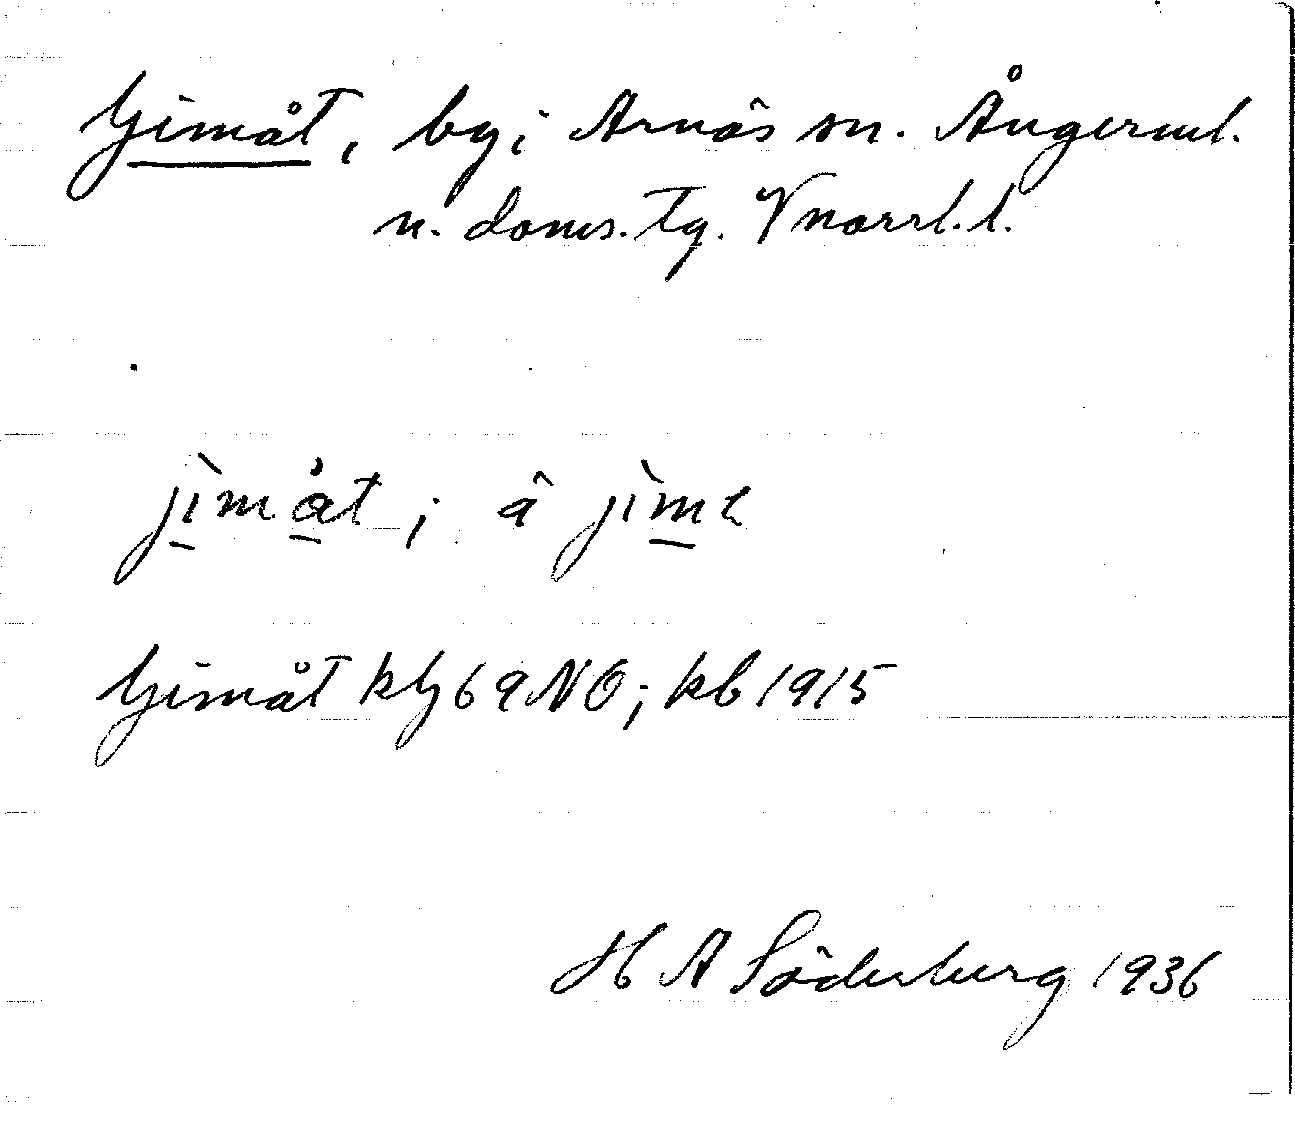 Gimåt, by i Arnäs sn. Ångerml.
n. doms. tg. Vnorrl. l.
jìmåt; â jìmt
Gimåt kbj 69 NO; kb 1915
H A Söderberg 1936